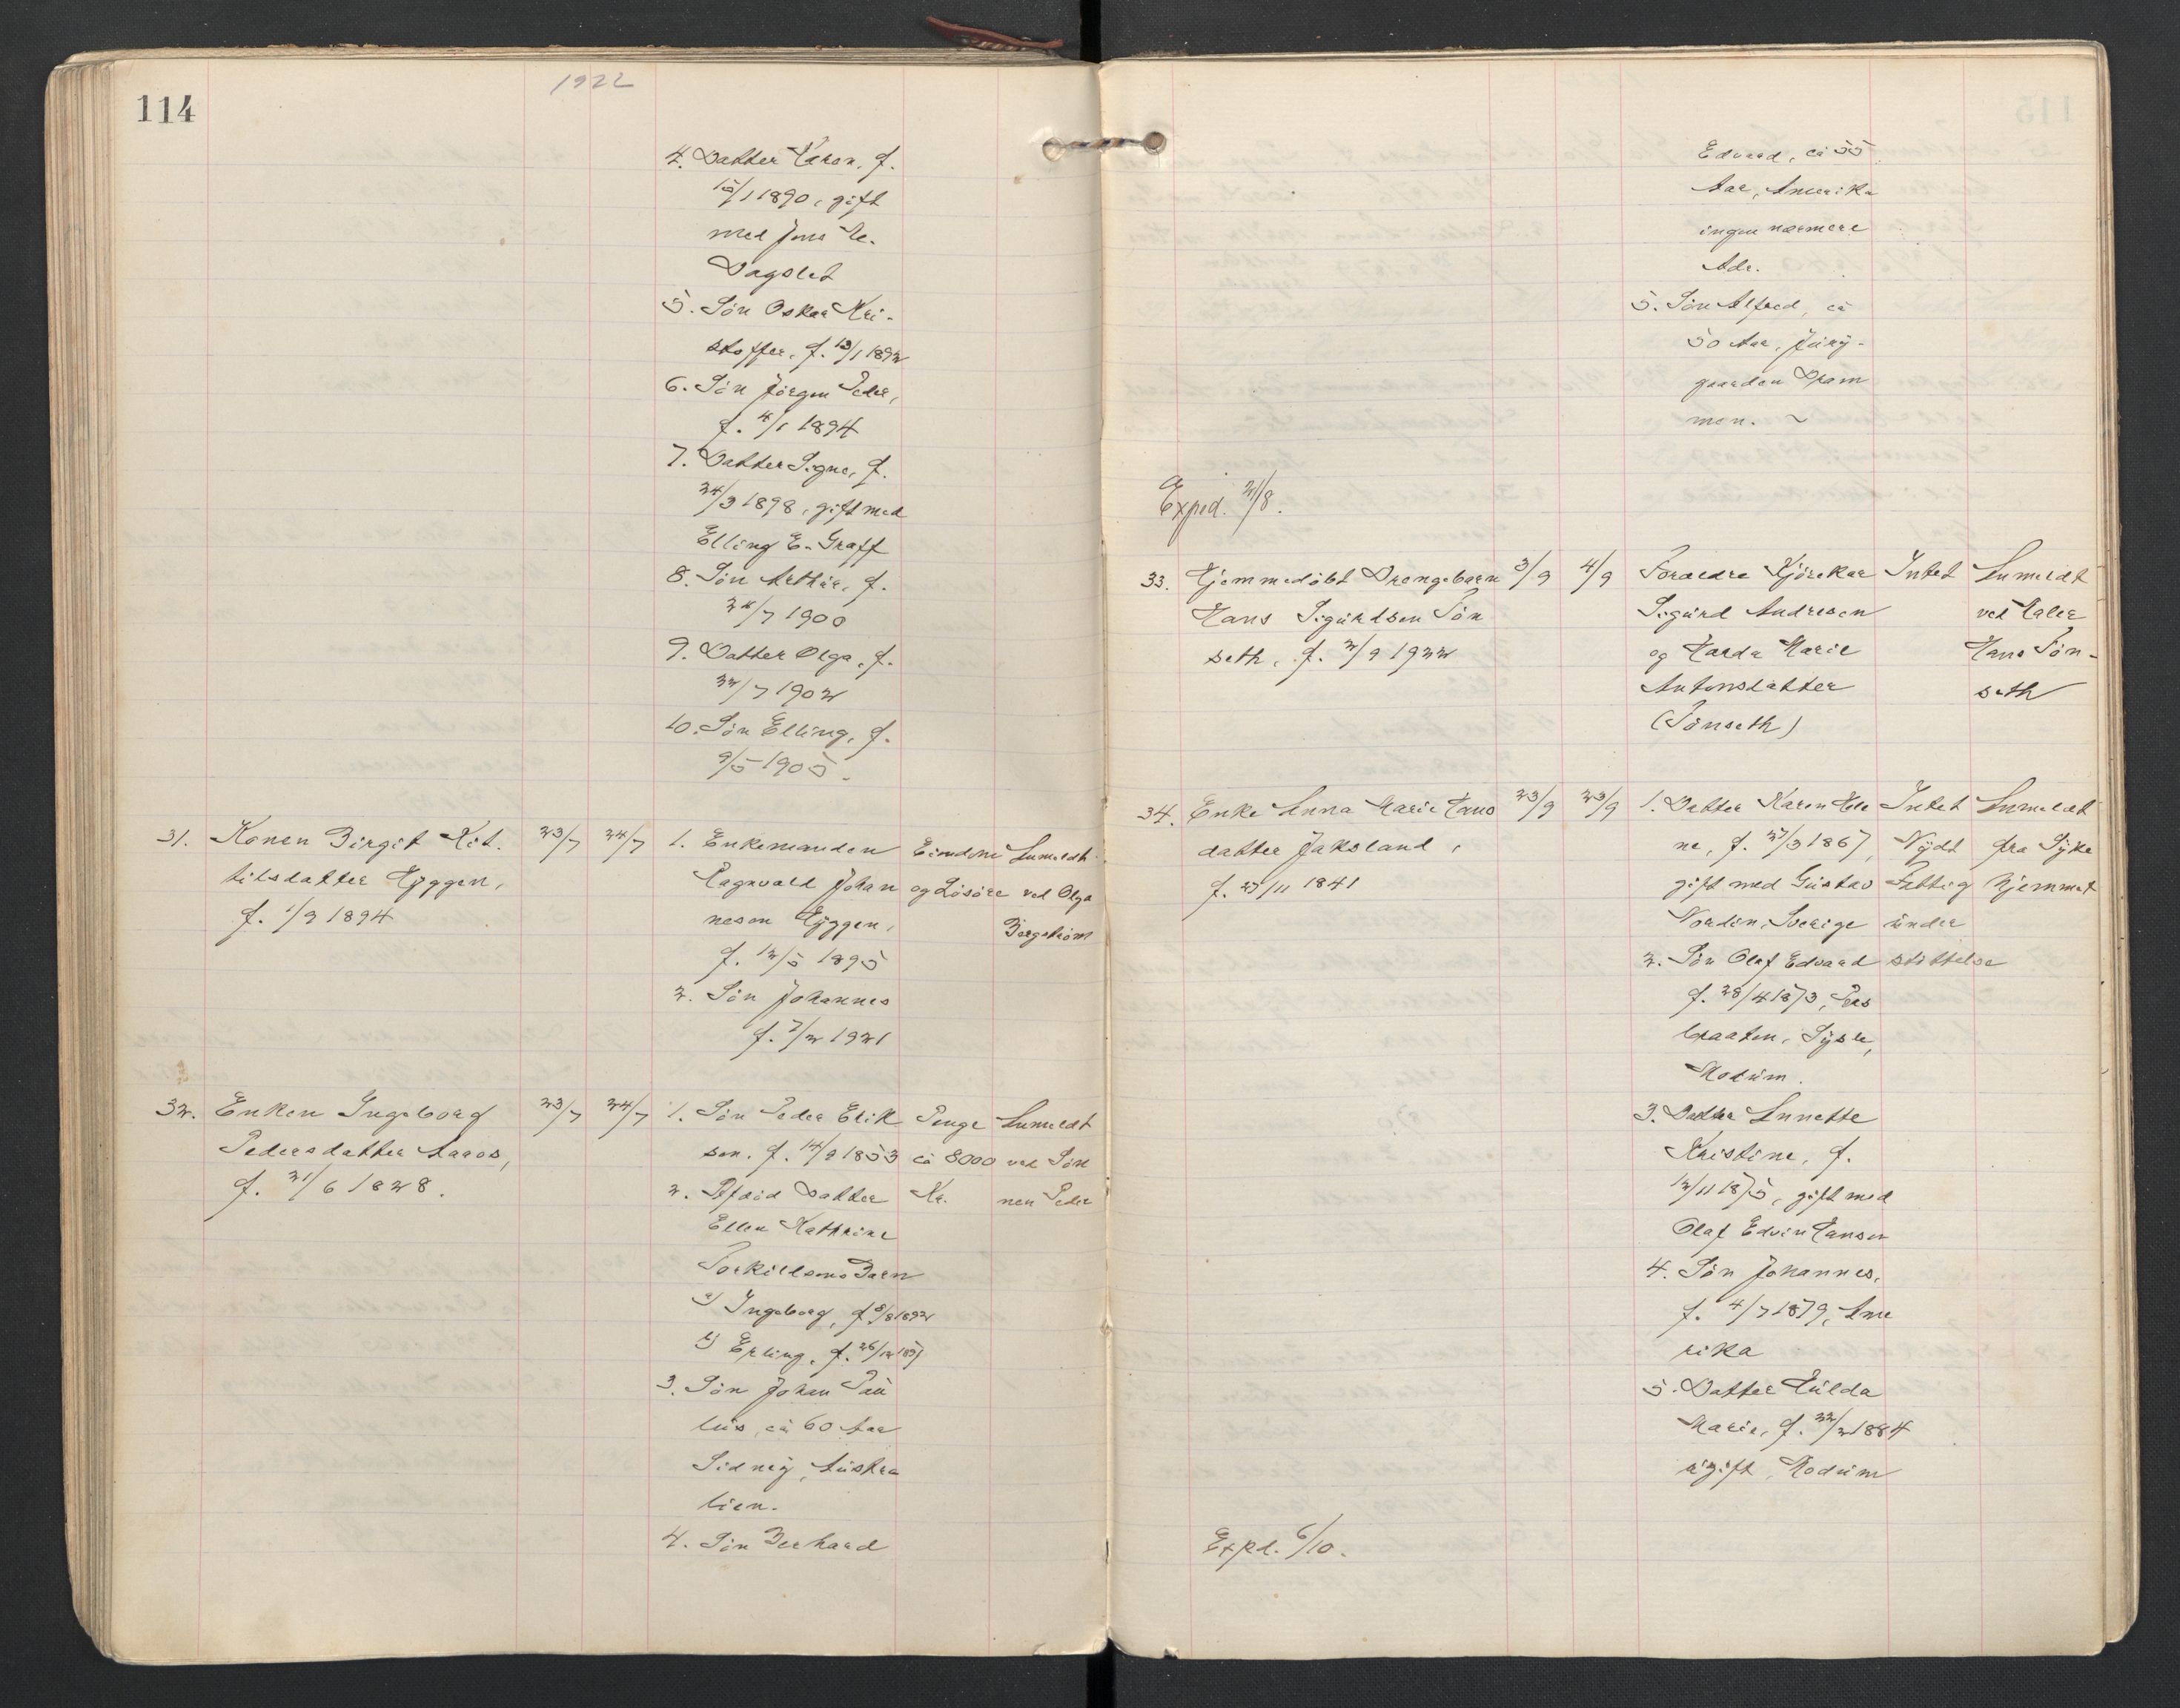 114
1922
4. Datter Karen, f.
15/1 1890, gift
med Jens
Dagslet
5. Søn Oskar Kri-
stoffer, f. 13/1 1892
6. Søn Jørgen Peder,
f. 4/1 1894
7. Datter Signe, f.
24/3 1898, gift med
Elling E. Graff
8. Søn Arthur, f.
24/7 1900
9. Datter Olga, f.
22/7 1902
10. Søn Elling, f.
9/5 1905.
31. Konen Birgit Ket- 23/7 24/7 1. Enkemanden Eiendom Anmeldt
tilsdatter Hyggen, Ragnvald Johan og Løsøre ved Olga
f. 1/3 1894 nesen Hyggen, Bergstrøm
f. 12/5 1895
2. Søn Johannes
f. 7/2 1921
32. Enken Ingeborg 23/7 24/7 1. Søn Peder Erik Penge Anmeldt
Pedersdatter Aaros, sen. f. 14/9 1853 ca 8000 ved Søn
f. 21/6 1828. 2. Afdød Datter Kr. nen Peder
Ellen Kathrine
Torkildsens Barn
a) Ingeborg, f. 8/8 1892
b) Erling, f. 26/12 1897
3. Søn Johan Pau
lus, ca 60 Aar
Sidney, Austra
lien.
4. Søn Berhard
Edvard, ca 55
Aar, Amerika
ingen nærmere
Adr.
5. Søn Alfred, ca
50 Aar,
gaarden Dram
men. ~
Exped. 21/8.
33. Hjemmedøbt Drengebarn 3/9 4/9 Forældre Kjørekar Intet Anmeldt
Hans Sigurdsen Tøn Sigurd Andresen ved Maler
seth, f. 2/9 1922 og Harda Marie Hans Tøn-
Antonsdatter seth
(Tønseth)
34. Enke Anna Marie Hans 23/9 23/9 1. Datter Karen Hele Intet Anmeldt
datter Jaksland, ne, f. 27/3 1867, Nydt fra Syke
f. 27/11 1841 gift med Gustav Fattig hjemmet
Nordin, Sverige under
2. Søn Olaf Edvard støttelse
f. 28/4 1873, Pers
braaten, Sysle,
Modum.
3. Datter Annette
Kristine, f.
12/11 1875, gift med
Olaf Edvin Hansen
4. Søn Johannes,
f. 4/7 1879, Ame
rika
5. Datter Hulda
Marie, f. 22/2 1884
ugift, Modum
Expd. 6/10.